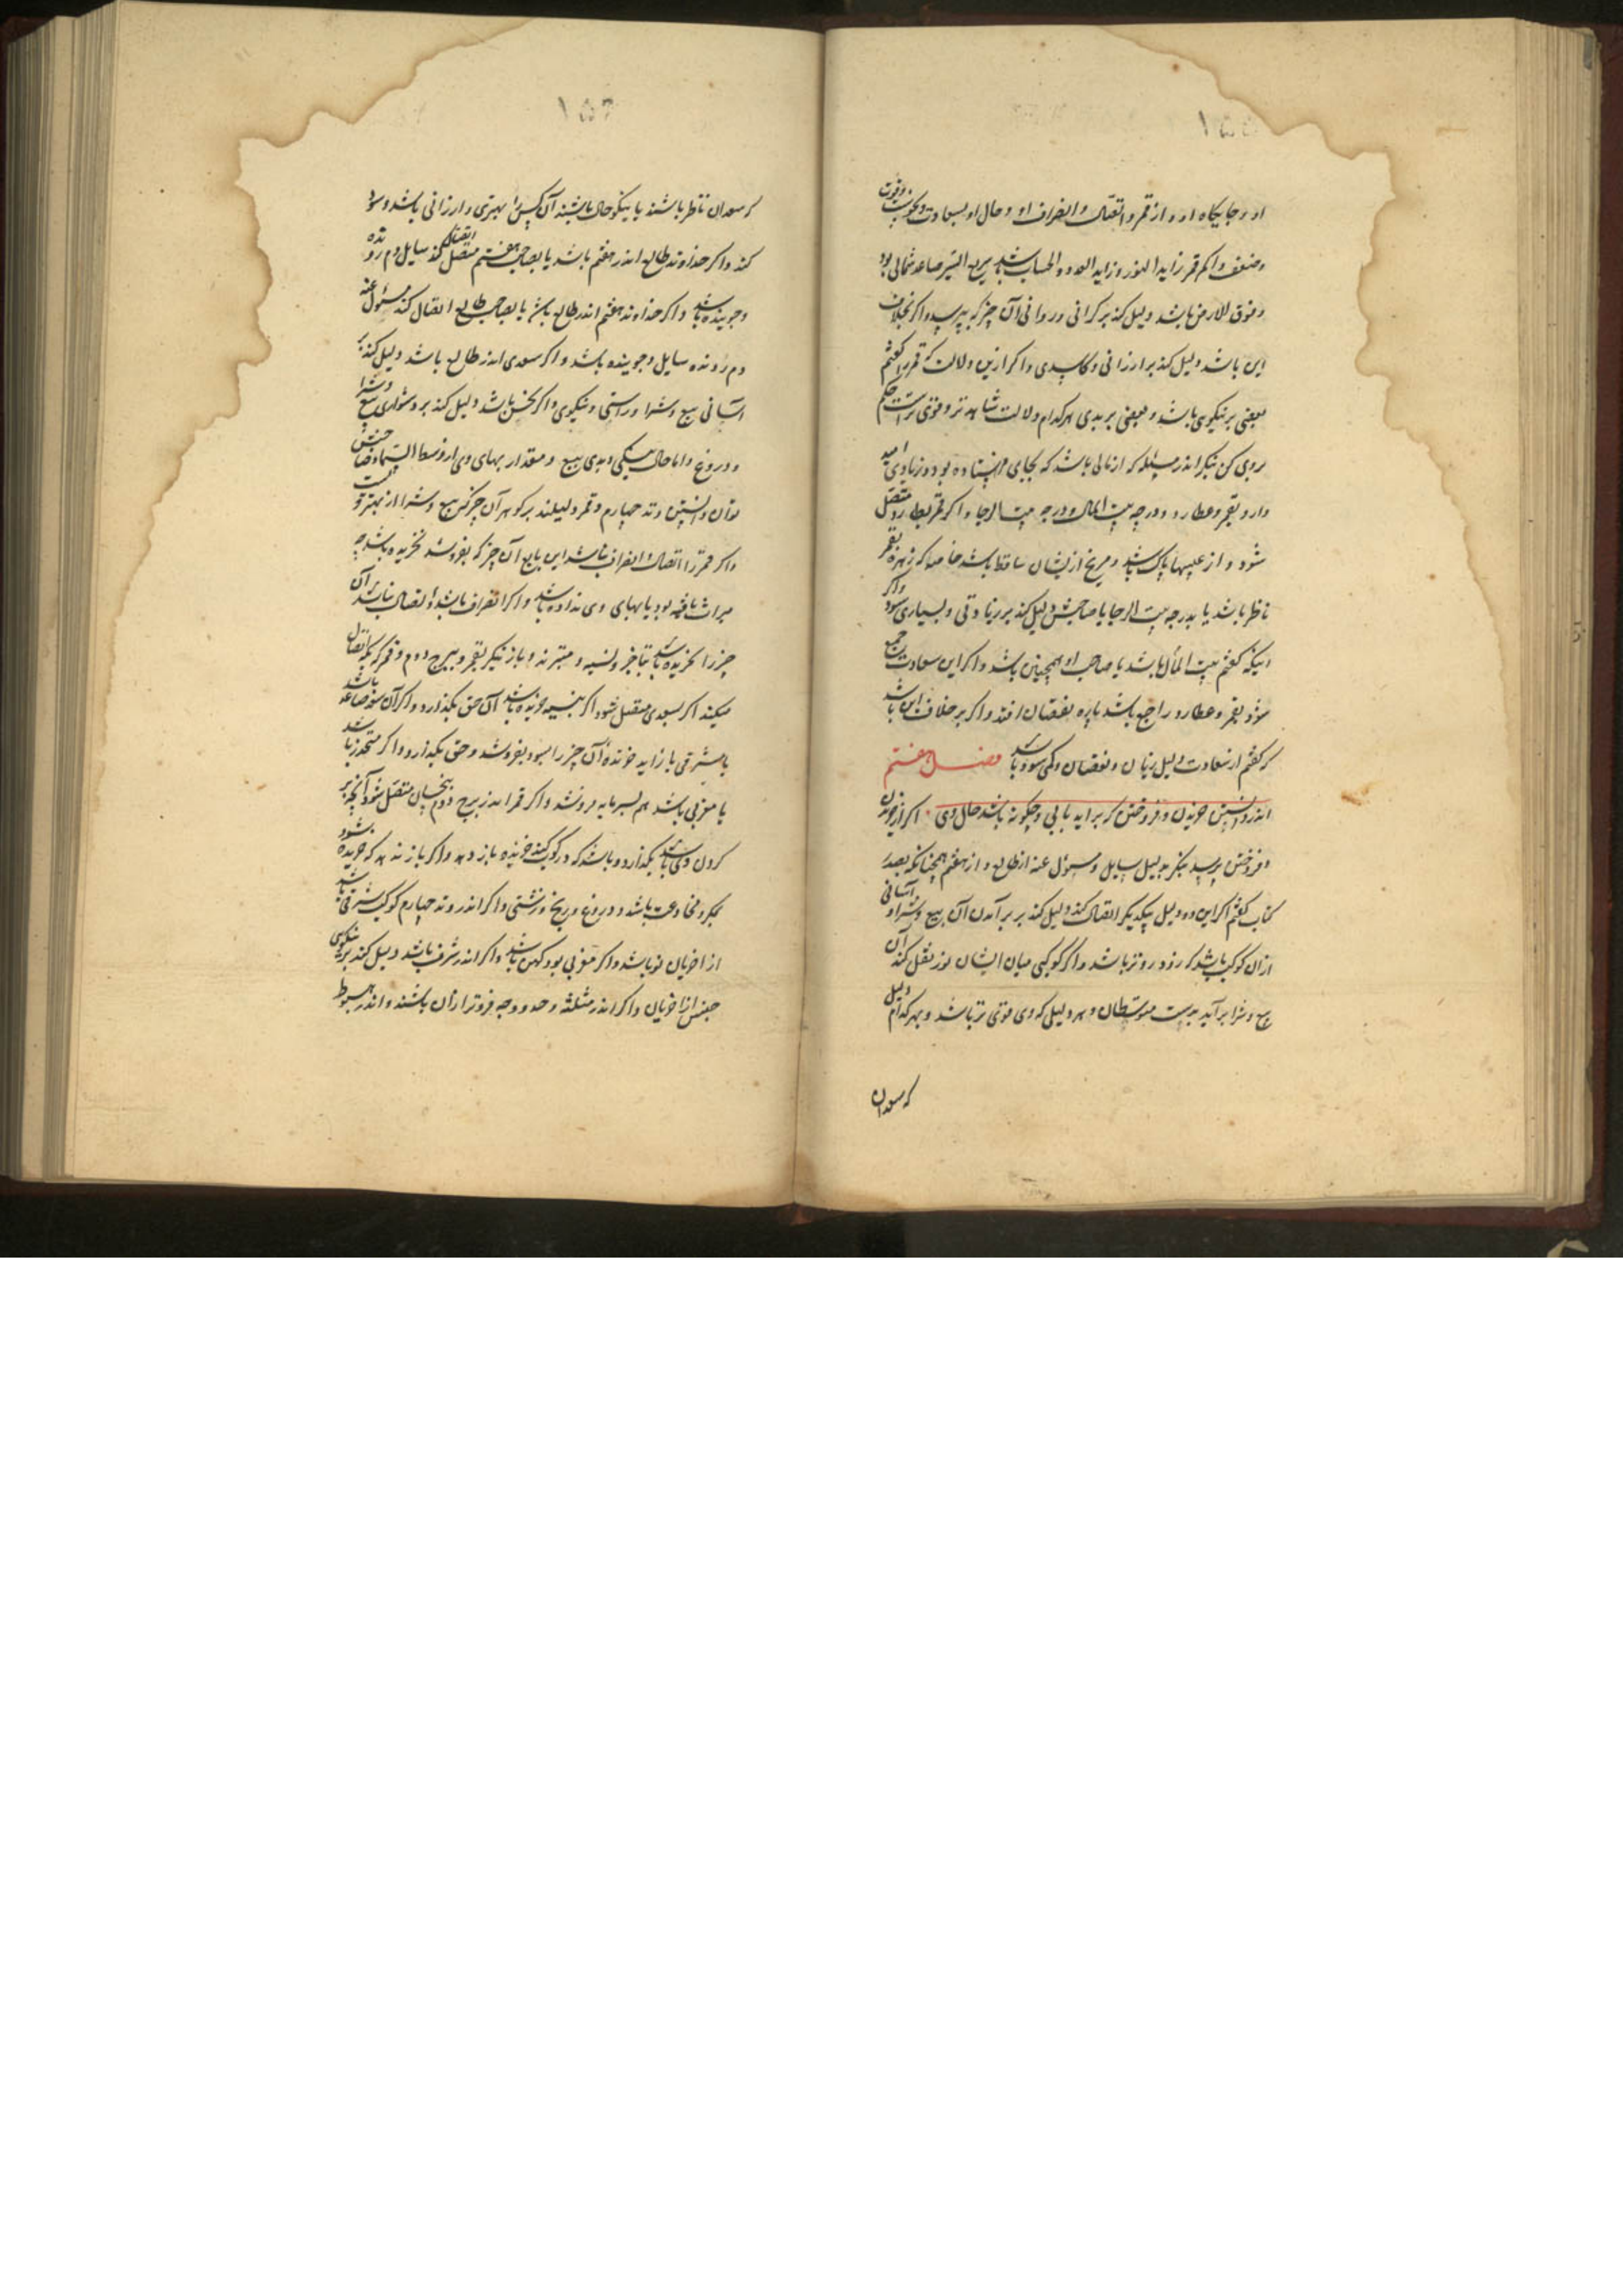 او و جایکاه او و از قمر و اتصال و انصراف او و حال او بسعادت و نحوست و قوت
و ضعف و اکر قمر زاید النور و زاید العدد و الحساب باشد سریع السیر صاعد شمالی بود
و فوق الارض باشد دلیل کند بر کرانی و روانی آن چیز که بپرسید و اکر بخلاف
این باشد دلیل کند بر ارزانی و کاسدی و اکر ازین دلالت که قمر را کفتم
بعضی بر نیکوی باشد و بعضی بر بدی هر کدام دلالت شاهدتر و قوی‌تر است حکم
بروی کن بنکر اندر مسئله که از مالی باشد که بجای فرستاده بود و زیادی امید
دارد بقمر و عطارد و درجه بیت المال و درجه بیت الرجا و اکر قمر بعطارد متصل
شود و از عیبها پاک باشد و مریخ ازیشان ساقط باشد خاصه که زهره بقمر
ناظر باشد یا بدرجه بیت الرجا یا صاحبش دلیل کند بر زیادتی و بسیاری سود و اکر
کفتم بیت المال باشد یا صاحب او همچنین باشد و اکر این سعادت جمع
شود بقمر و عطارد راجع باشد پاره نقصان افتد و اکر بر خلاف این باشد
که کفتم از سعادت دلیل زیان و نقصان و کمی سود باشد فصل هفتم
اندر دانستن خریدن و فروختن که براید یا نی و چکونه باشد حال وی اکر از خریدن
و فروختن پرسید بنکر بدلیل سایل و مسئول عنه از طالع و از هفتم همچنانکه بصدر
کتاب کفتم اکر این دو دلیل بیکدیکر اتصال کند دلیل کند بر برآمدن آن بیع و شرا و آسانی
ازان کوکب باشد که زودروتر باشد و اکر کوکبی میان ایشان نور نقل کند آن
بیع و شرا برآید بدست متوسطان و هر دلیلی که وی قوی‌تر باشد و بهر کدام دلیل
که سعدان
که سعدان ناظر باشند یا نیکوحال باشند آن کس را بهتری و ارزانی باشد و سود
کند و اکر خداوند طالع اندر هفتم باشد یا بصاحب هفتم متصل اتصال کند سایل دم رونده
و جوینده باشد و اکر خداوند هفتم اندر طالع باشد یا بصاحب طالع اتصال کند مسئول عنه
دم رونده سایل و جوینده باشد و اکر سعدی اندر طالع باشد دلیل کند بر
آسانی بیع و شرا و راستی و نیکوی و اکر نحس باشد دلیل کند بر دشواری بیع و شرا
و دروغ و اما حال نیکی و بدی بیع و مقدار بهای وی از وسط السماء و صاحبش
توان دانستن وتد چهارم و قمر دلیلند بر کوهر آن چیز کش بیع و شرا از بهتر
و اکر قمر را اتصال و انصراف نباشد این بایع آن چیز که بفروشد نخریده باشد چه
میراث یافته بود یا بهای وی نداده باشد و اکر انصراف باشد و اتصال نباشد آن
چیز را بخریده باشد بتاخیر و نسیه و باز نیکر بقمر و ببرج دوم و قمر که بکه اتصال
میکند اکر بسعدی متصل شود اکر بنسیه خریده باشد آن حق بکذارد و اکر آن سعد صاعد باشد
یا مشرقی یا زاید خرنده آن چیز را بسود بفروشد و حق بکذارد و اکر منحدر باشد
یا مغربی باشد هم بسرمایه فروشد و اکر قمر اندر برج دوم بنحسان متصل شود
کردن وی باشد بکذارد و باشد که باز دهد و اکر باز ندهد که خریده شود
بمکر و مخادعت باشد و دروغ و زشتی و اکر اندر وتد چهارم کوکب شرقی باشد
از اخریان نو باشد و اکر مغربی بود کهن باشد و اکر اندر شرف باشد دلیل کند بر نیکویی
جنس از اخریان و اکر اندر مثلثه و حد و وجه فروتر ازان باشند و اندر هبوط